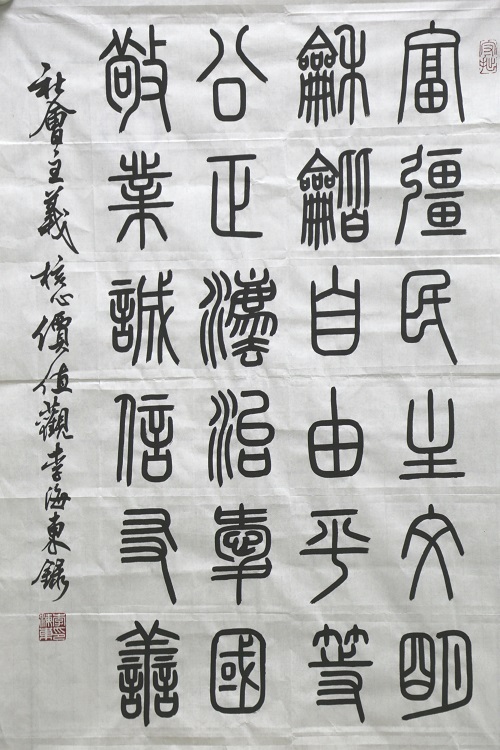 富彊民主文明
龢龤自由平等
公正灋治愛國
敬業誠信友善
社會主義核心價值觀李海東錄